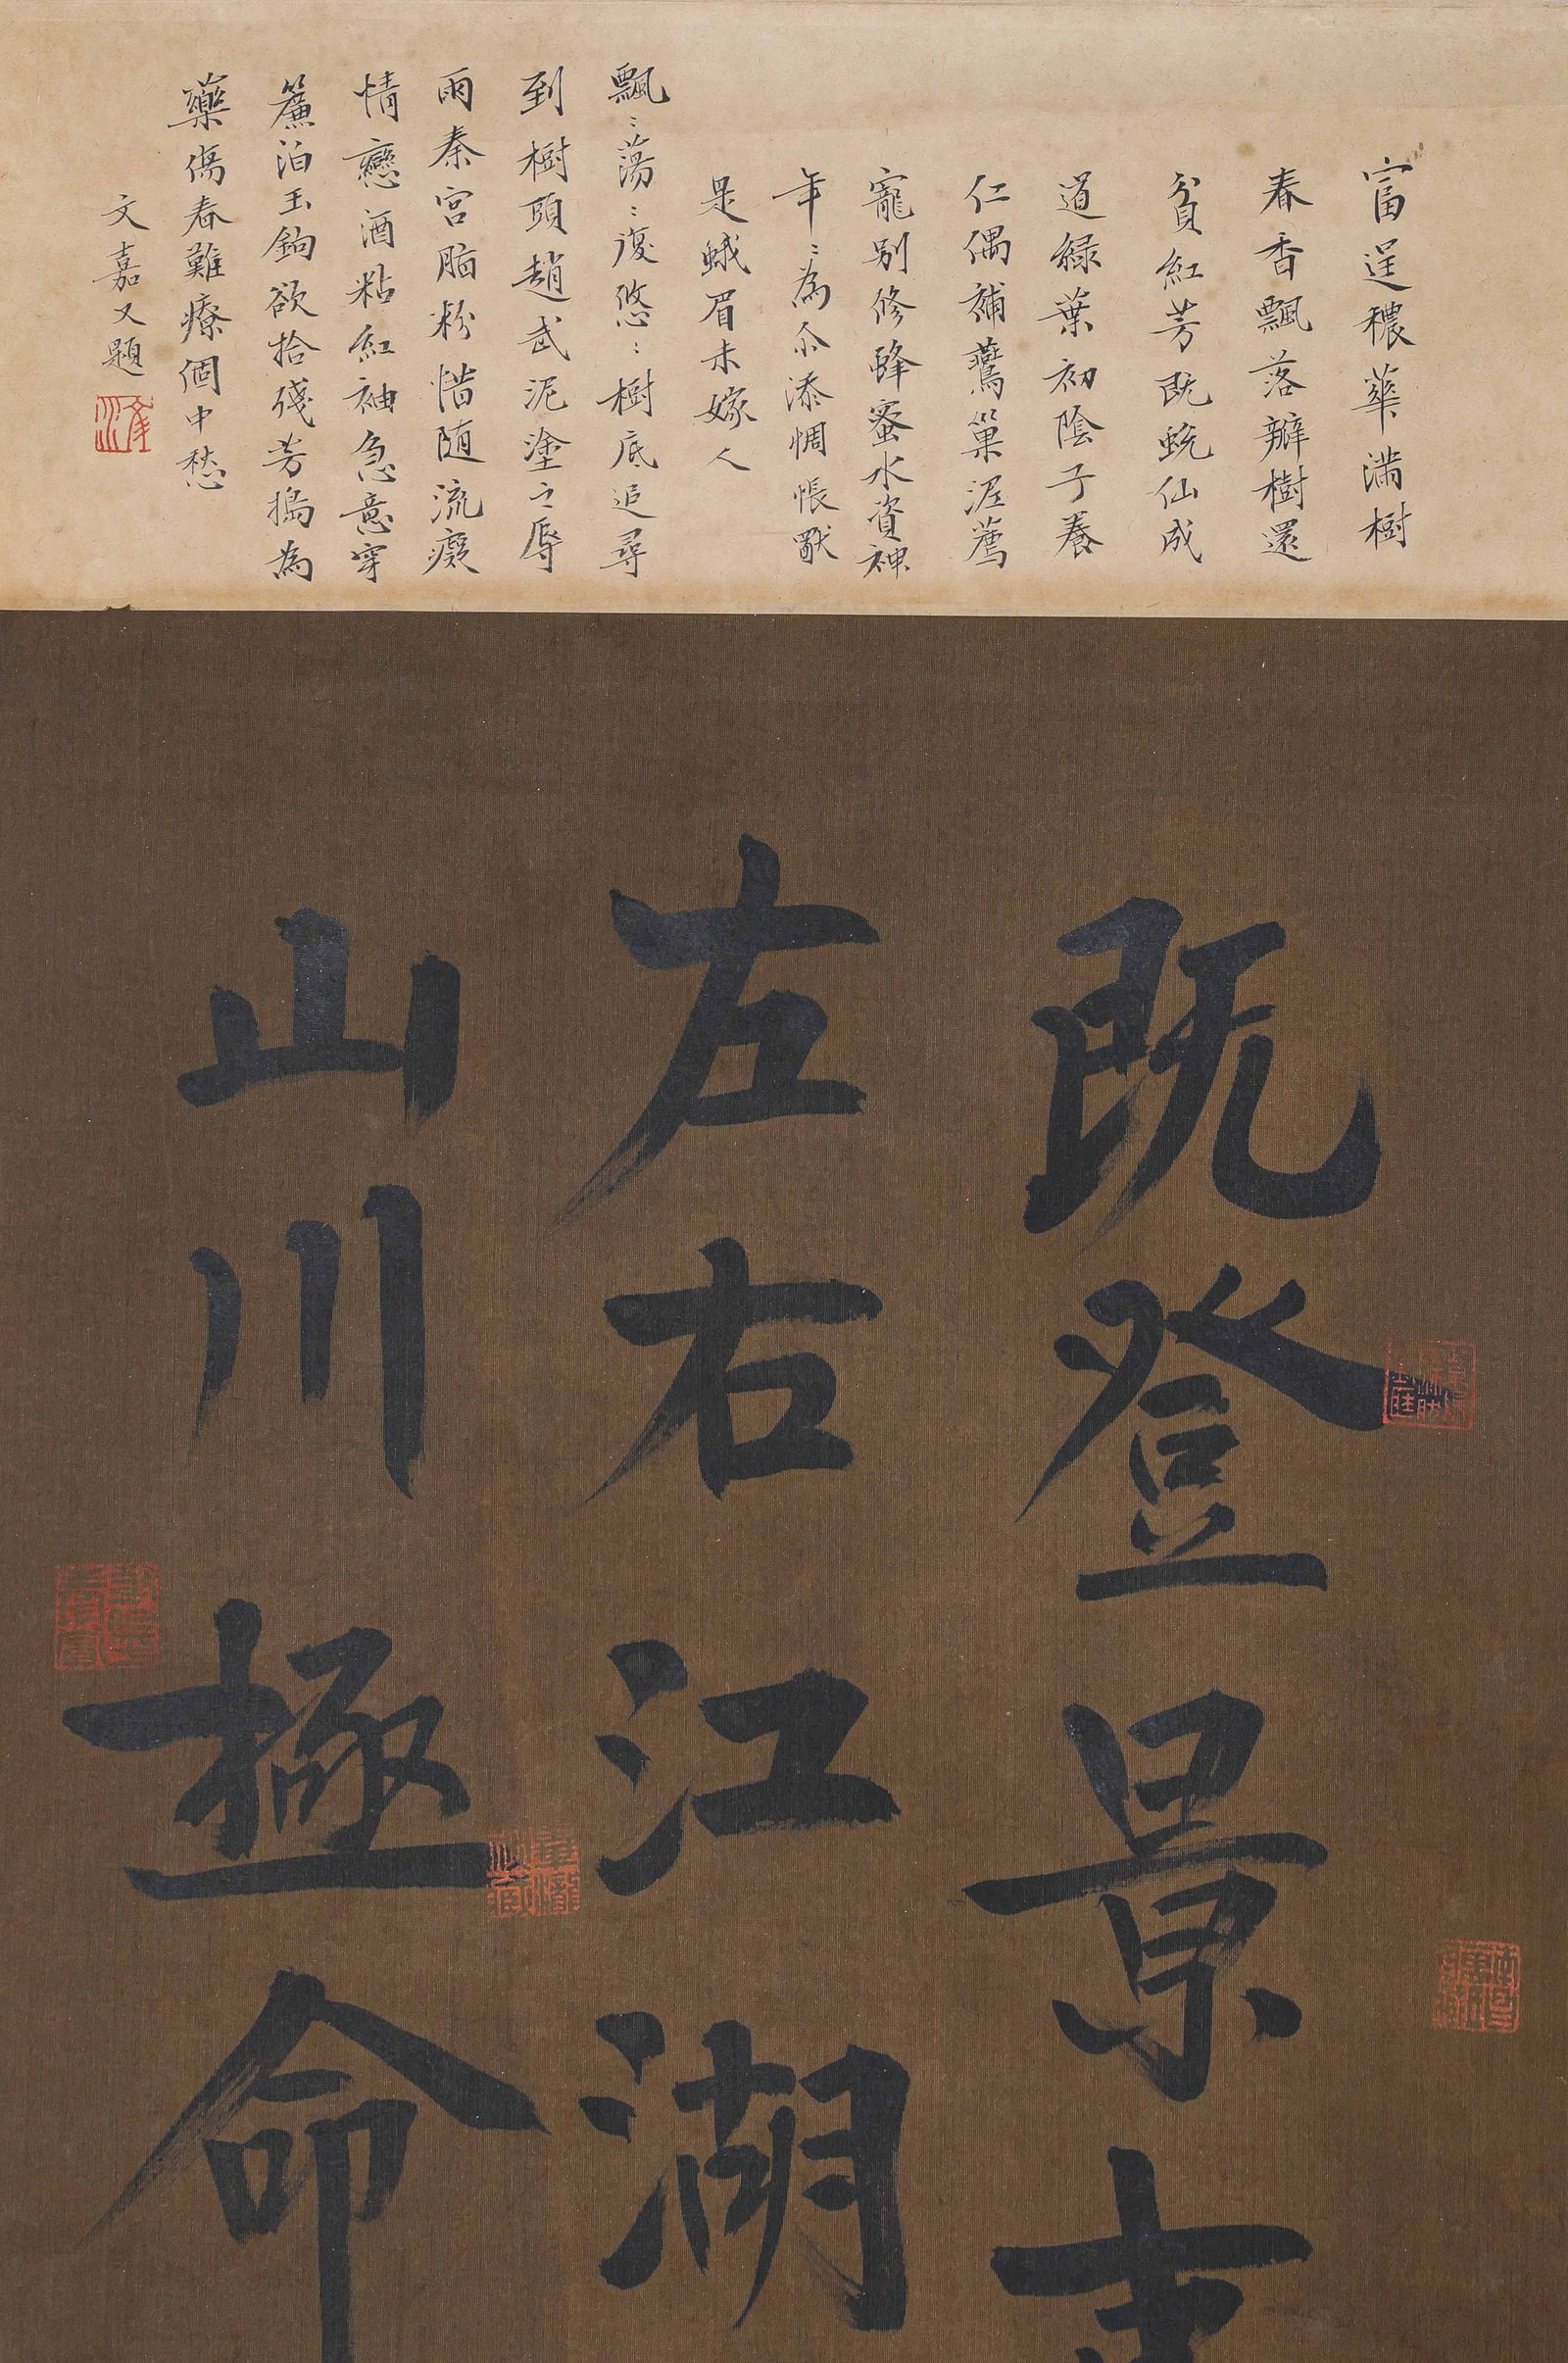 富逞穠華滿樹
春香飄落瓣樹還
貧紅芳既蛻仙成
道緑葉初陰子養
仁偶補鷰巢泥薦
寵别修蜂蜜水資神
年〻為尔添惆悵厭
是蛾眉未嫁人
飄〻蕩〻復悠〻樹底追尋
到樹頭趙武泥塗之辱
雨秦宫脂粉惜随流癡
情戀酒粘紅袖急意穿
簾泊玉鉤欲拾殘芳搗為
藥傷春難療個中愁
文嘉又題
既登景
左右江湖
山川極命